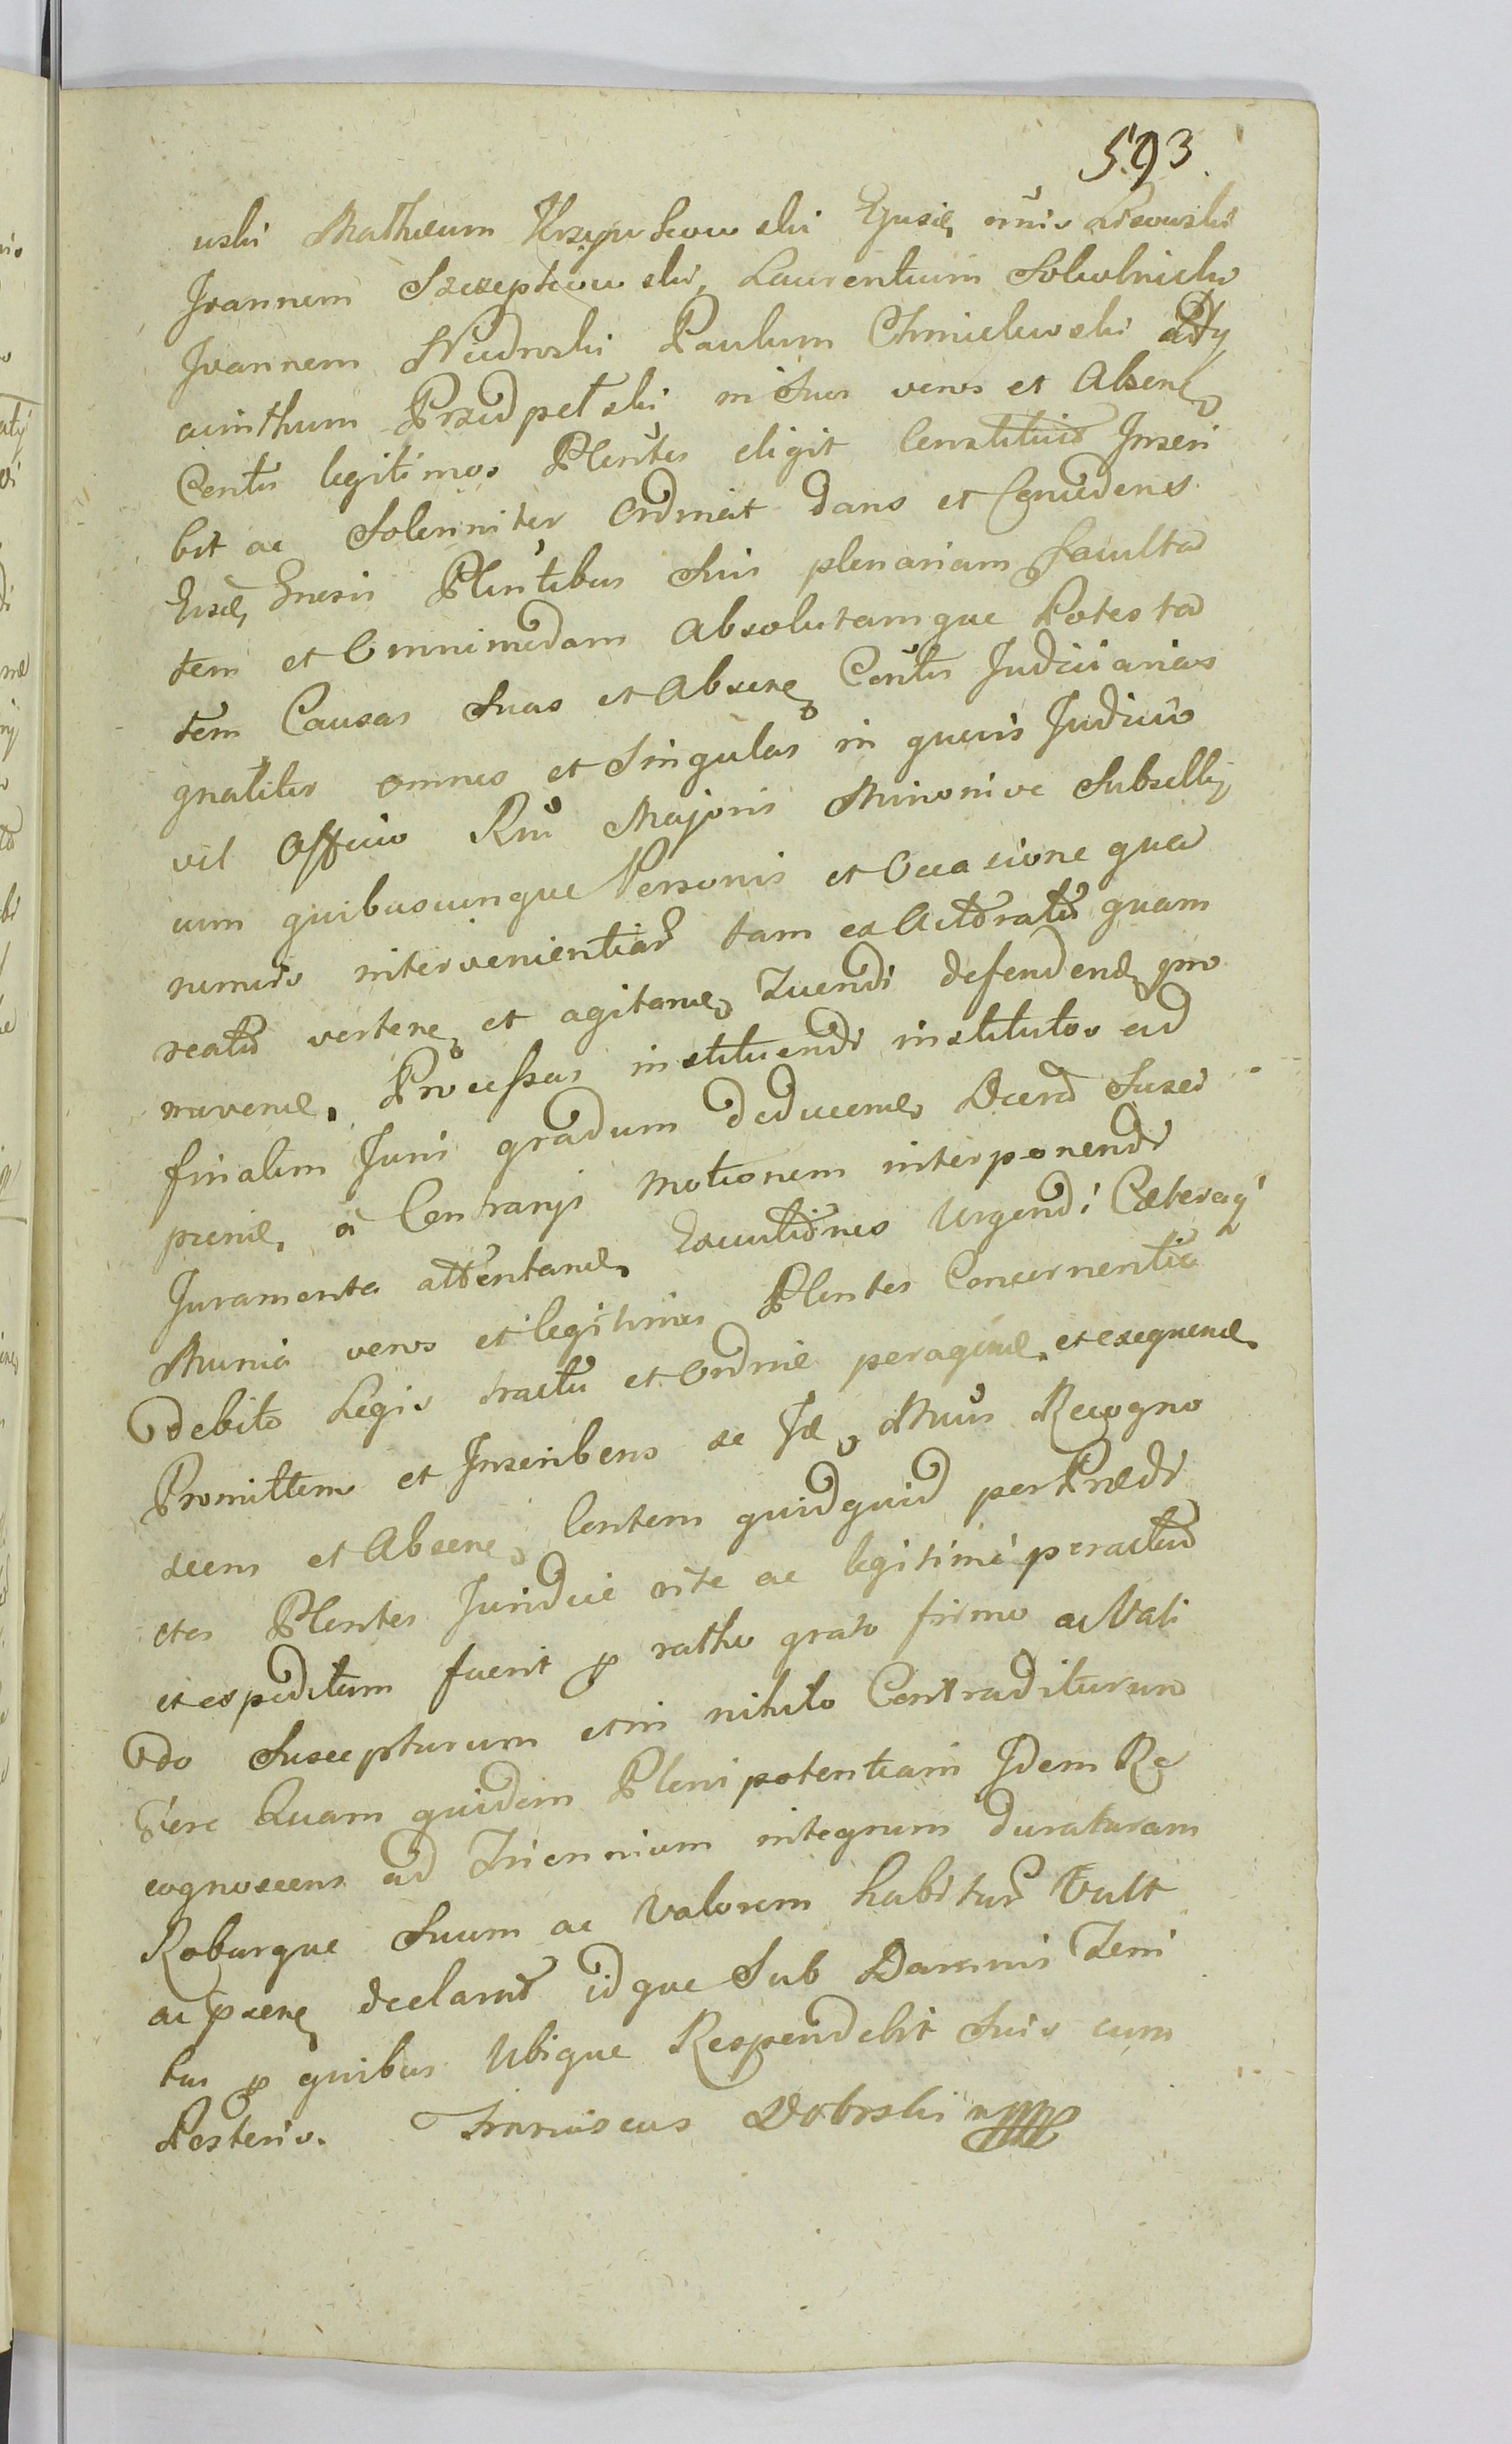 593.
wski Matheum Krzywkowski Ejusd. omnis Lisowski
Joannem Szczepkowski, Laurentium Sokolnicki
Joannem Niedroski Paulum Chmielewski atty
acinthum Przedpełski in suos veros et Absene
Contis legitimos Plentes eligit Constituit Inscri
bit ac Solenniter Ordinat dans et Concedens
Eisd. Gnosis Plentibus suis plenariam faculta
tem et Omnimodam Absolutamque Potesta
tem Causas suas et Absene Contis Judiciarias
gnaliter omnes et Singulas in quovis Judicio
vel Officio Rni Majoris Minorisve Subsellij
cum quibuscunque Personis et Occasione qua
rumvis intervenientiar tam ex Actoratu quam
reatu verten. et agitand. Tuendi defendend. pro
movend. Processus instituendi institutos ad
finalem Juris gradum deducend. Decret Susci
piend. a Contrarys motionem interponendi
Juramenta attentand. Executiones Urgendi Caeteraq
Munia veros et legitimos Plentes Concernentia
debito Legis tractu et Ordine peragend. et exequend.
Promittens et Inscribens se Id. Mnus Recogno
scens et Absene Contem quidquid per Praedi
ctos Plentes Juridice rite ac legitime peractum
et expeditum fuerit p ratho grato firmo ac Vali
do Suscepturum et in nihilo Contradicturum
fore Quam quidem Plenipotentiam Idem Re
cognoscens ad Triennium integrum duraturam
Roburque suum ac Valorem habitur Vult
ac psene declarat idque Sub Damnis Terri
tus p quibus Ubique Respondebit suis cum
Posteris. Franciscus Dobrski mpp